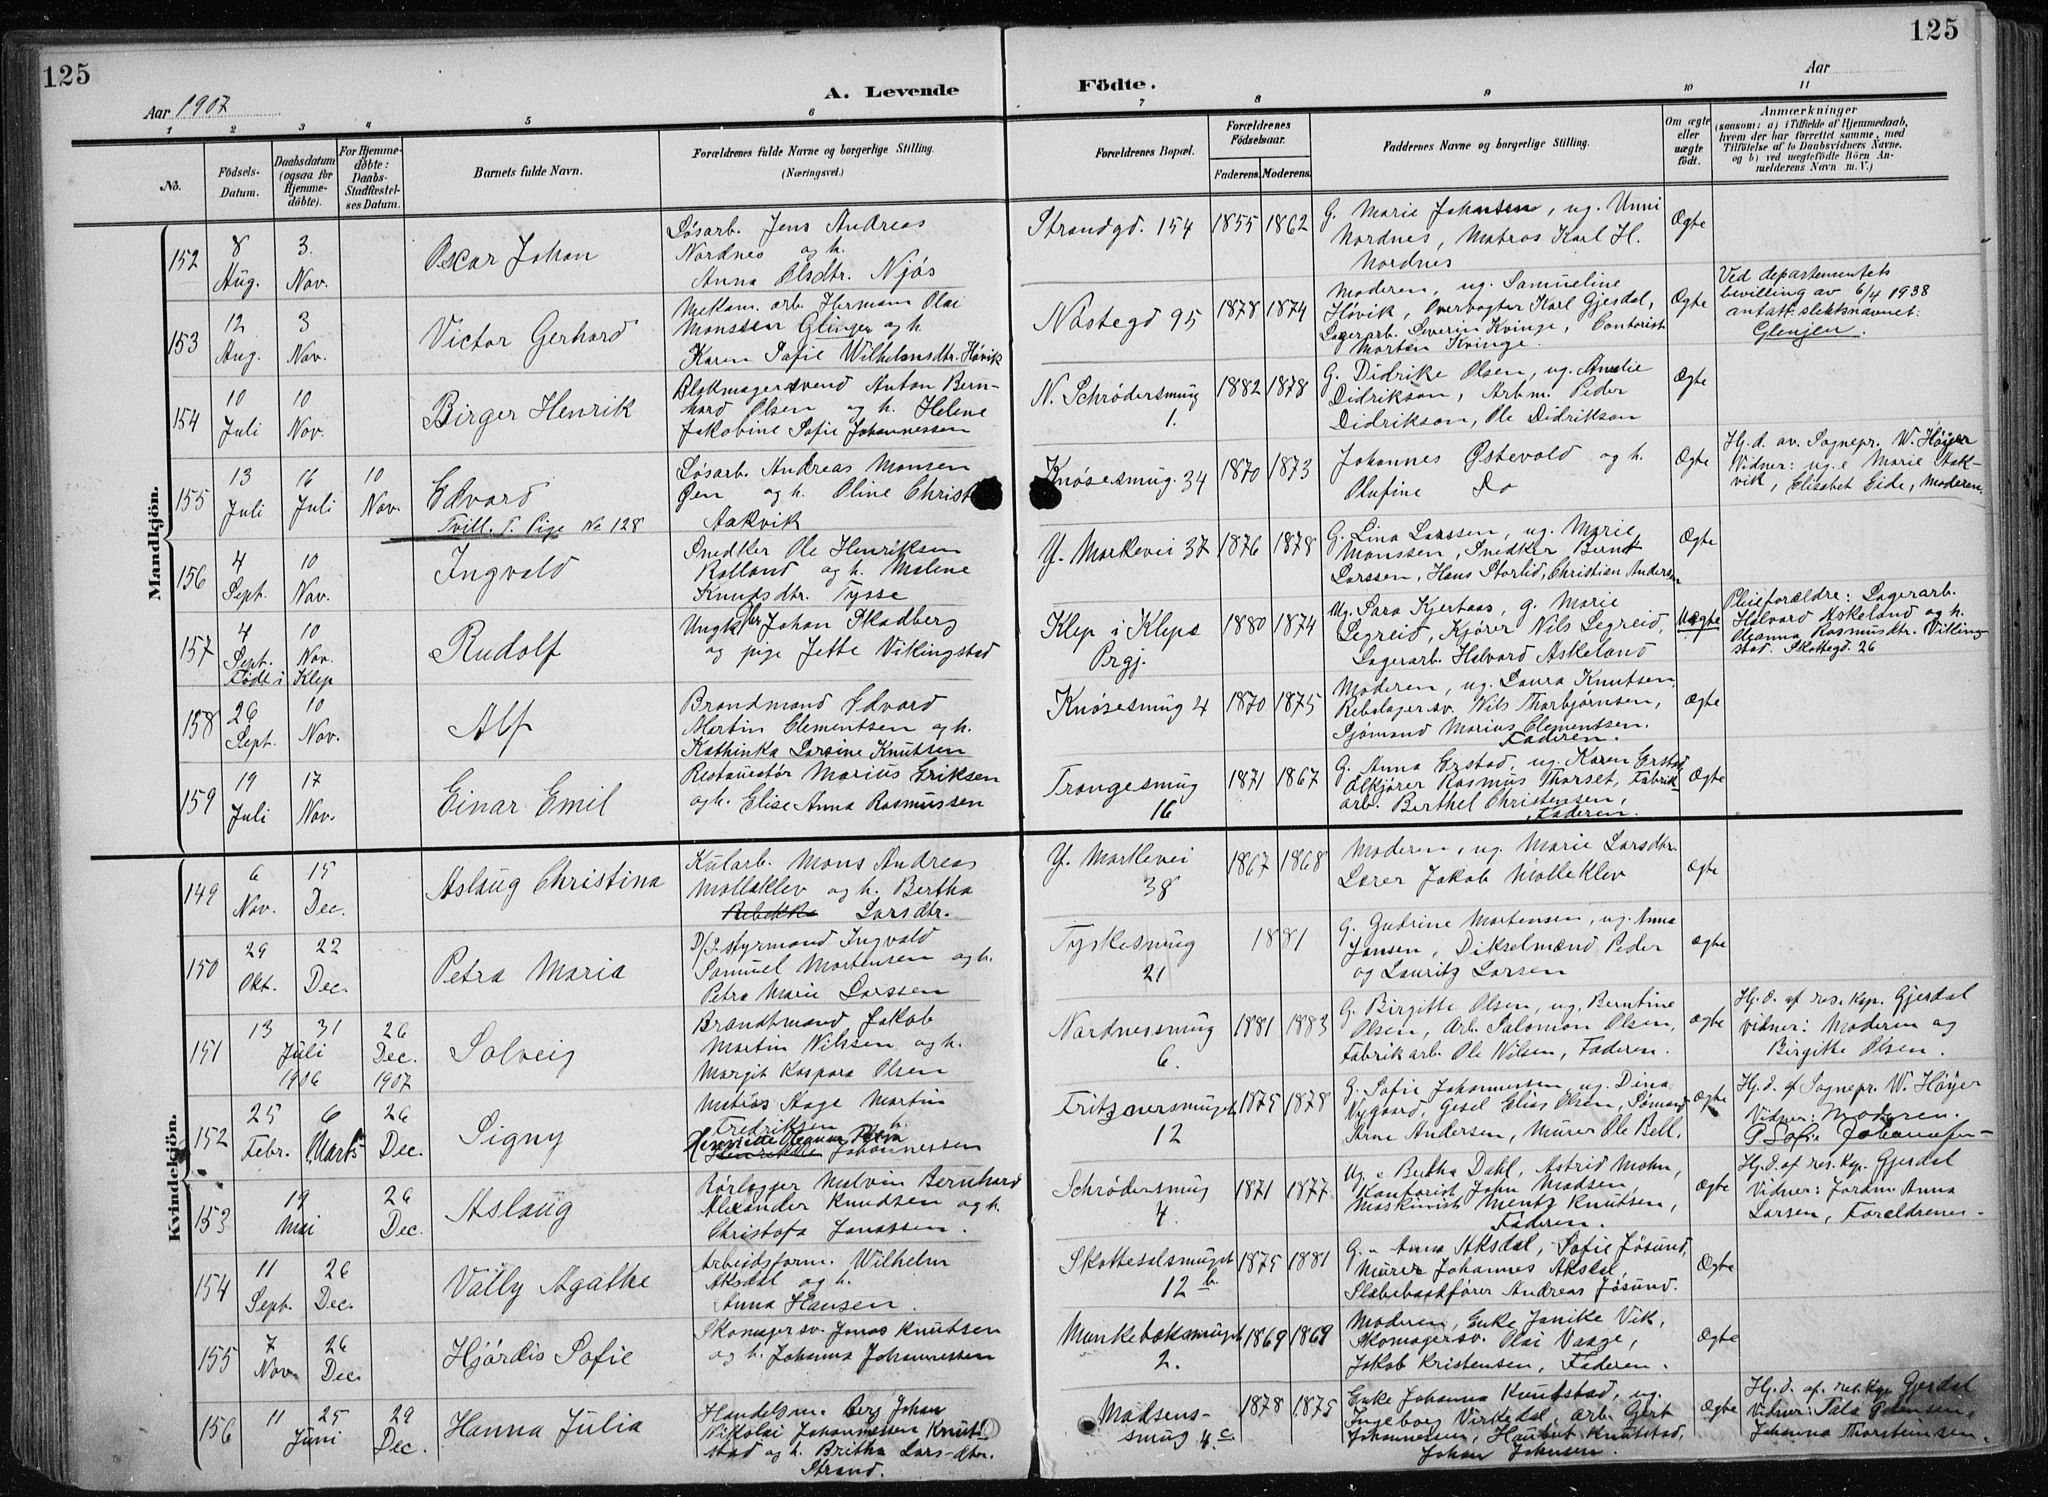 125
125
Aar 1907
A. Levende
Födte.
Aar
1 2 3 4 5 6 7 8 9 10 11
No.
Födsels-
Datum.
Daabsdatum
(ogsaa for
Hjemme-
döbte).
For Hjemme-
döbte:
Daabs-
Stadfæstel-
ses Datum.
Barnets fulde Navn.
Forældrenes fulde Navne og borgerlige Stilling.
(Næringsvei.)
Forældrenes Bopæl.
Forældrenes
Födselsaar.
Faderens. Moderens.
Faddernes Navne og borgerlige Stilling.
Om ægte
eller
uægte
födt.
Anmærkninger
(saasom: a) i Tilfælde af Hjemmedaab,
hvem der har forrettet samme, med
Tilföielse af to Daabsvidners Navne.
og b) ved uægtefödte Börn An-
melderens Navn m. V.)
Mandkjön.
152
8
Aug.
3.
Nov.
Oscar Johan
Løsarb. Jens Andreas
Nordnes og h.
Anna Olsdtr. Njøs
Strandgd. 154
1855 1862
G. Marie Johansen, ug. Unni
Nordnes, Matros Karl H.
Nordnes
Ægte
153
12
Aug.
3
Nov.
Victor Gerhard
Mekan. arb. Herman Olai
Monssen Glinger og h.
Karen Sofie Wilhelmsdtr. Høvik
Nøstegd 95
1878 1874
Moderen, ug. Samueline
Høvik, Overvogter Karl Gjesdal,
Lagerarb. Severin Kvinge, Contorist
Morten Kvinge.
Ægte
Ved departementets
bevilling av 6/4 1938
antatt slektsnavnet:
Glenjen.
154
10
Juli
10
Nov.
Birger Henrik
Blokmagersvend Anton Bern-
hard Olsen og h. Helene
Jakobine Sofie Johannessen
N. Schrødersmug
1.
1882 1878
G. Didrike Olsen, ug. Amalie
Didrikson, Arbm. Peder
Didrikson, Ole Didrikson
Ægte
155
13
Juli
16
Juli
10
Nov.
Edvard
Tvill. T. Pige No 128
Løsarb. Andreas Monsen
Øen og h. Oline Christ
Aakvik
Knøsesmug. 34
1870 1873
Johannes Østevold og h.
Olufine Do
Ægte
Hj. d. av. Sognepr. W. Høyer
Vidner: ug. e Marie Aak-
vik, Elisabet Eide, Moderen.
156
4
Sept.
10
Nov.
Ingvald
Snedker Ole Henriksen
Rolland og h. Malene
Knudsdtr. Tysse
Y. Markevei 37
1876 1878
G. Lina Larssen, ug. Marie
Monssen, Snedker Bernt
Larssen, Hans Storlid, Christian Andersen
Ægte
157
4
Sept.
Født i
10
Nov.
Klep
Rudolf
Ungk. Johan Skadberg
og pige Jette Vikingstad
Klep i Kleps
Prgj.
1880 1874
Ug. Sara Kjertaas, g. Marie
Legreid, Kjører Nils Legreid,
Lagerarb. Halvard Askeland
Uægte
Pleieforældre: Lagerarb.
Halvard Askeland og h.
Oleanna Rasmusdtr. Viking-
stad. Skottegd. 26
158
26
Sept.
10
Nov.
Alf
Brandmand Edvard
Martin Clementsen og h.
Kathinka Larsine Knutsen
Knøsesmug 4
1870 1875
Moderen, ug. Laura Knutsen,
Rebslagersv. Nils Thorbjørnsen,
Sjømand Marius Clementsen.
Faderen.
Ægte
159
19
Juli
17
Nov.
Einar Emil
Restauratør Marius Eriksen
og h. Elise Anna Rasmussen
Trangesmug
16
1871 1867
G. Anna Erstad, ug. Karen Erstad,
Ølkjører Rasmus Thorset, Fabrik-
arb. Berthel Christensen,
Faderen.
Ægte
Kvindekjön.
149
6
Nov.
15
Dec.
Aslaug Christina
Kularb. Mons Andreas
Molleklev og h. Bertha
Rebekka Larsdtr.
Y. Markevei
38
1867 1868
Moderen, ug. Marie Larsdtr.
Lærer Jakob Molleklev
Ægte
150
29
Okt.
22
Dec.
Petra Maria
D/S styrmand Ingvald
Samuel Mortensen og h.
Petra Marie Larssen
Tyskesmug
21
1881
G. Gudrine Mortensen, ug. Anna
Jansen, Dikselmænd Peder
og Lauritz Larsen
Ægte
151
13
31
Juli
1906
26
Dec.
1907
Solveig
Brandtmand Jakob
Martin Nilssen og h.
Margit Kaspara Olsen
Nordnessmug
6.
1881 1883
G. Birgitte Olsen, ug. Berntine
Olsen, Arb. Salomon Olsen,
Fabrikarb. Ole Nilsen, Faderen.
Ægte
Hj. d. af res. kap. Gjesdal
Vidner: Moderen og
Birgitte Olsen.
152
25
Febr.
6
Marts
26
Dec.
Signy
Matros Aage Martin
Fredriksen h.
Johannessen
Fritznersmuget
12
1875 1878
G. Sofie Johannessen, ug. Dina
Nygaard, Gesel Elias Olsen, Sømand
Arne Andersen, Murer Ole Bell.
Ægte
Hj. d. af Sognepr. W. Høyer
Vidner: Moderen.
153
19
Mai
26
Dec.
Aslaug
Rørlegger Malvin Bernhard
Alexander Knudsen og h.
Christofa Jonassen.
Schrødersmug
4.
1871 1877
Ug. Bertha Dahl, Astrid Mohn,
Kontorist John Madsen,
Maskinist Mentz Knutsen,
Faderen.
Ægte
Hj. d. af res. kap. Gjesdal
Vidner: Jordm. Anna
Larsen, Forældrene.
154
11
Sept.
26
Dec.
Vally Agathe
Arbeidsform. Wilhelm
Aksdal og h.
Anna Hansen.
Skottesalsmuget
12 b.
1875 1881
G. Anna Aksdal, Sofie Jøsund,
Murer Johannes Aksdal,
Slæbebaadfører Andreas Jøsund.
Ægte
155
7
Nov.
26
Dec.
Hjørdis Sofie
Skomagersv. Jonas Knutsen
og h. Johanna Johannessen
Munkebæksmuget
2.
1869 1869
Moderen, Enke Janike Vik,
Skomagersv. Olai Vaage,
Jakob Kristensen, Faderen.
Ægte
156
11
25
Juni
29
Dec.
Hanna Julia
Handelsm. Berg Johan
Nikolai Johannessen Knut-
stad og h. Britha Lars-dtr.
Strand.
Madsens-
smug 4 c.
1878 1875
Enke Johanna Knutstad, ug.
Ingeborg Virkedal, Arb. Gert
Johannessen, Haubut Knutstad,
Johan Johnsen.
Ægte
Hj. d. af. res. kap Gjesdal
Vidner: Tala Petersen,
Johanna Thorsteinsen.